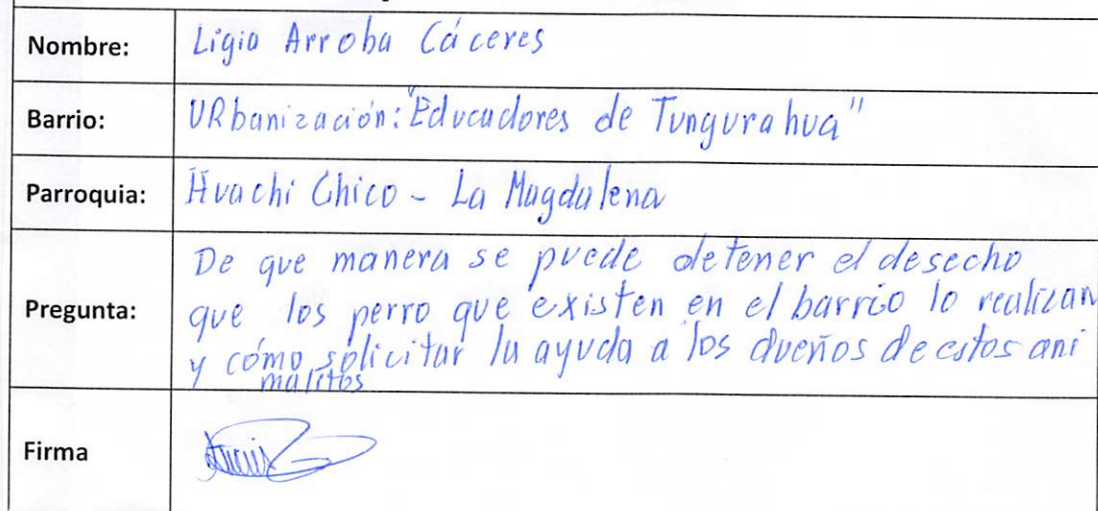 Nombre: Ligia Arroba Cáceres
Barrio: URbanización: "Educadores de Tungurahua"
Parroquia: Huachi Chico - La Magdalena
Pregunta: De que manera se puede detener el desecho
que los perro que existen en el barrio lo realizan
y cómo solicitar la ayuda a los dueños de estos ani
malitos
Firma